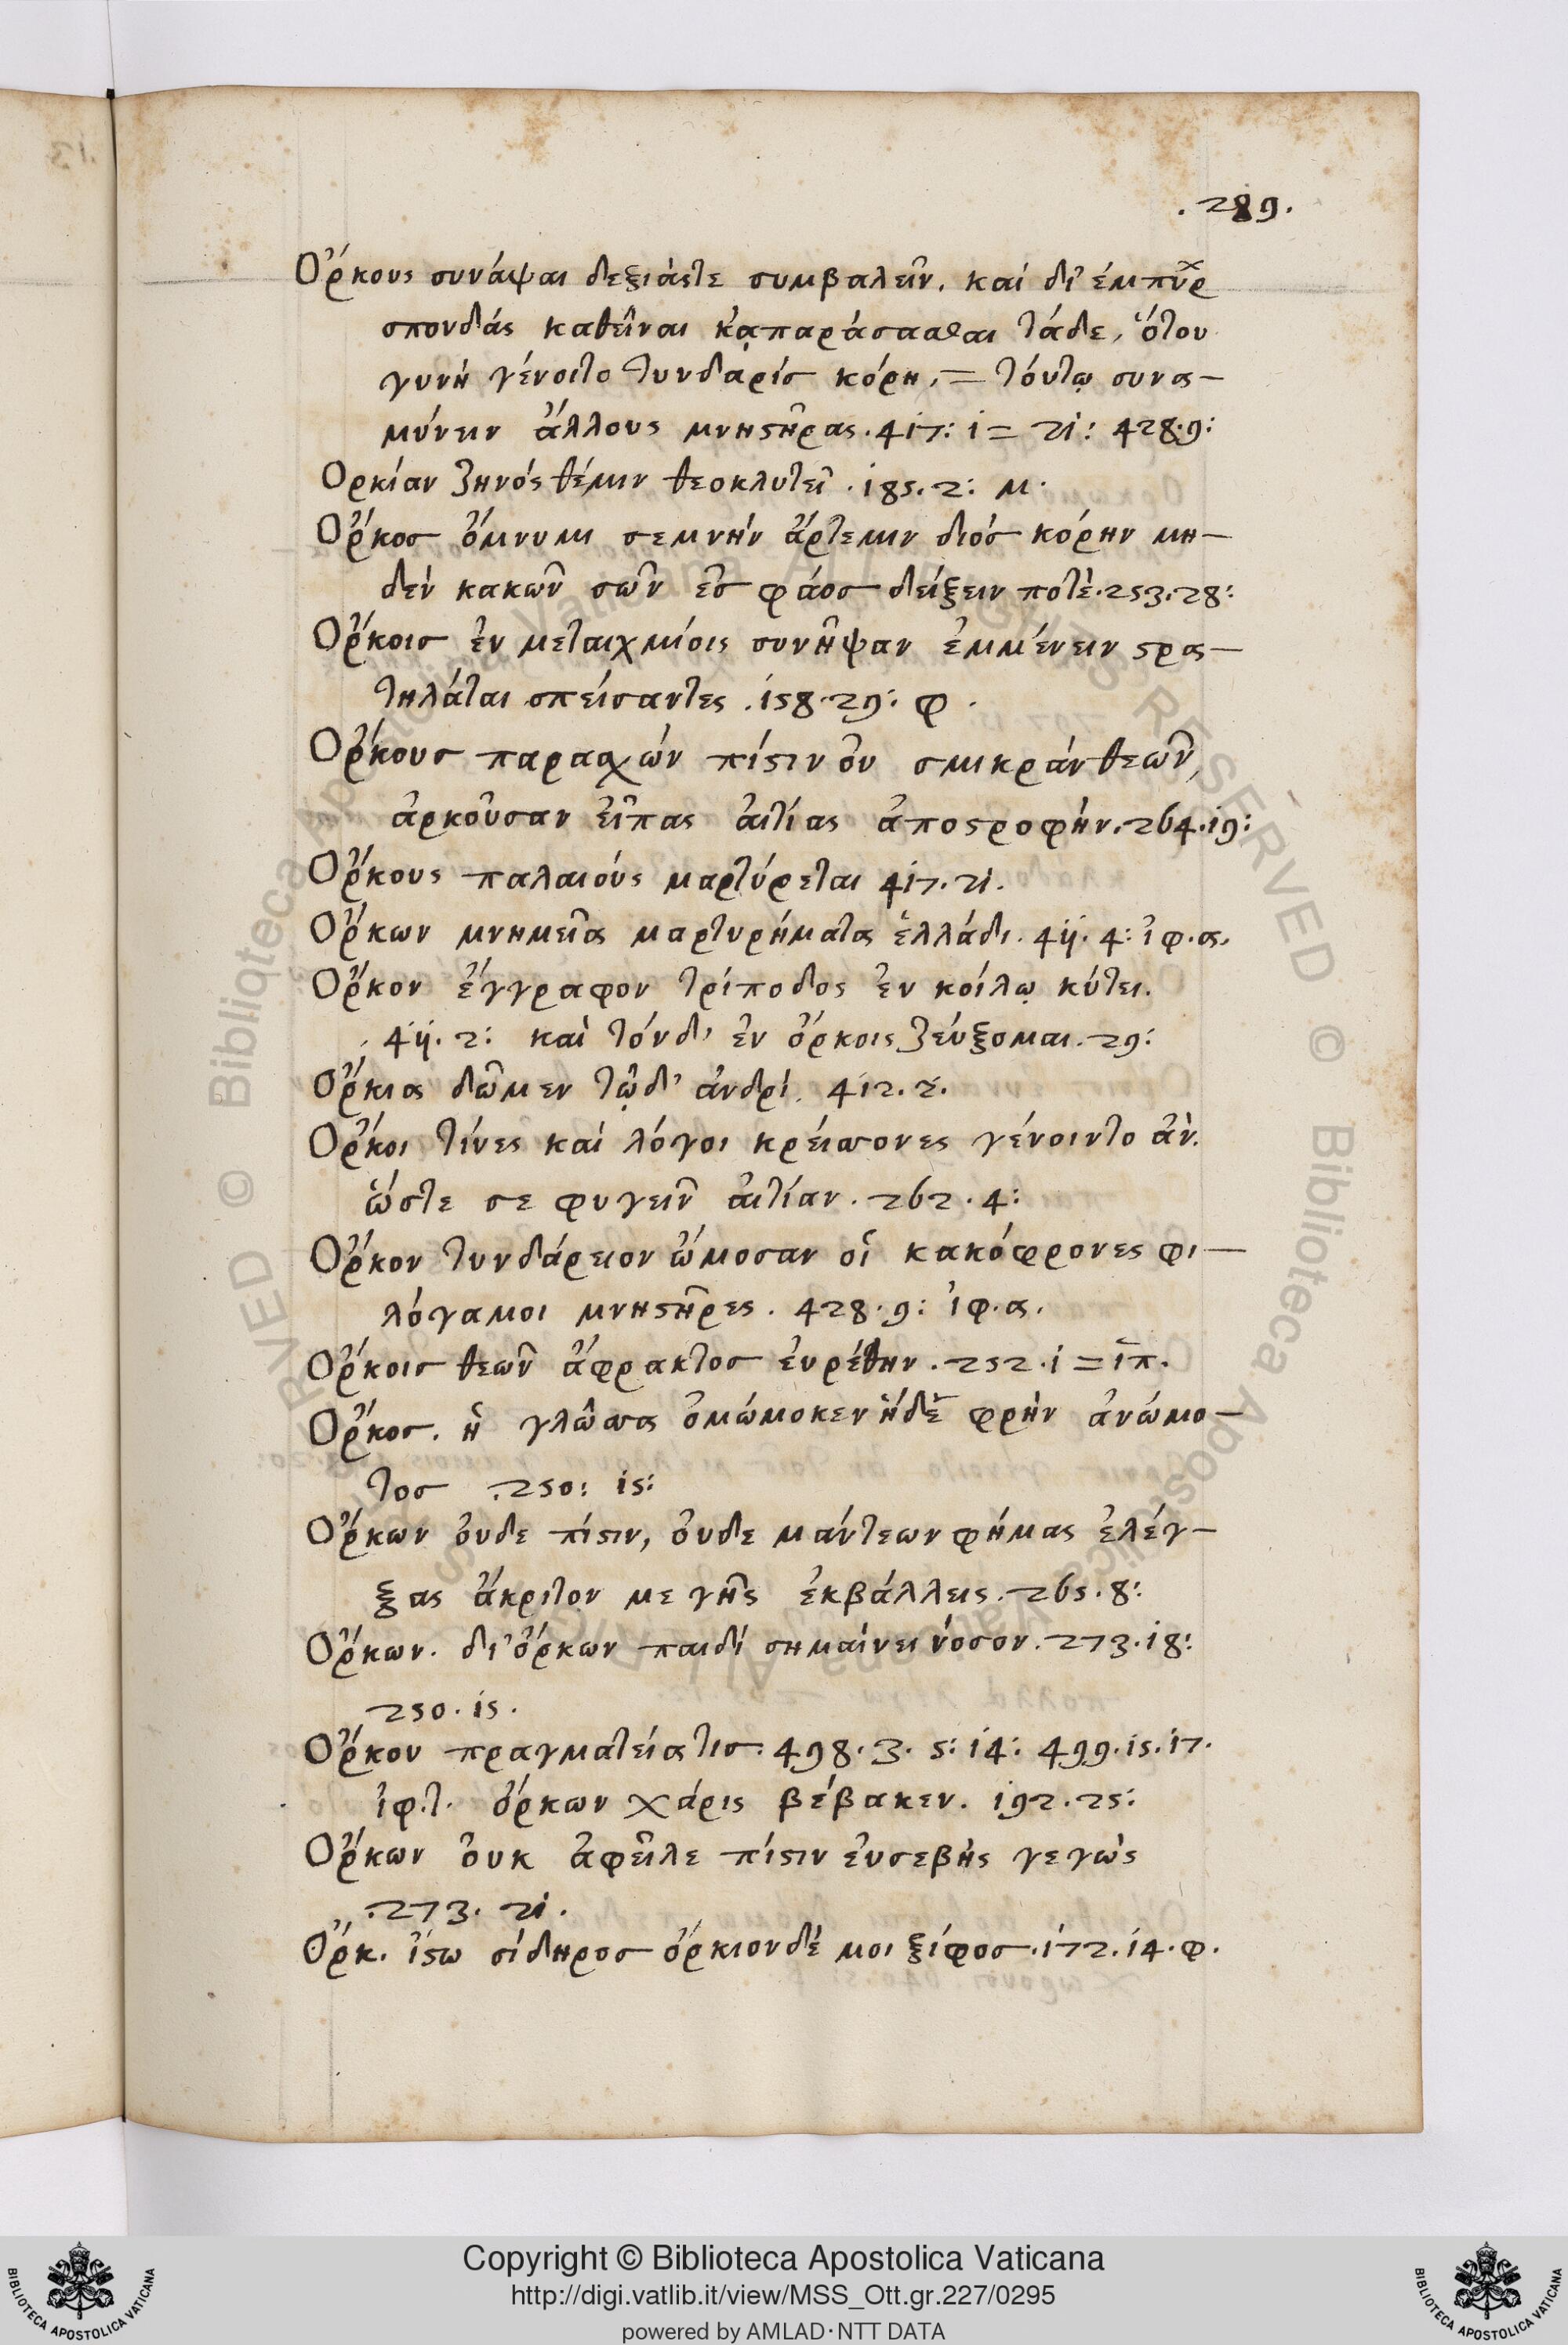 .289.
Ὅρκους συνάψαι δεξιάςτε συμβαλεῖν. καί δι' ἐμπῦρ
σπονδάς καθεῖναι κᾀπαράσασθαι τάδε, ὅτου
γυνή γένοιτο τυνδαρίσ κόρη, = τόυτῳ συνα-
μύνειν ἄλλους μνηϛῆρας. 417: 1 = 21: 428.9:
Ορκίαν ζηνός θέμιν θεοκλυτεῖ. 185.2: μ.
Ὅρκοσ ὄμνυμι σεμνήν ἄρτεμιν διόσ κόρην μη-
δέν κακῶν σῶν ἐσ φάοσ δείξειν ποτέ. 253.28:
Ὅρκοισ ἐν μεταιχμίοις συνῆψαν ἐμμένειν ϛρα-
τηλάται σπείσαντες. 158.29: φ.
Ὅρκους παρασχών πίϛιν ὀυ σμικράν θεῶν,
ἀρκοῦσαν εἶπας ἀιτίας ἀποϛροφήν. 264.19:
Ὅρκους παλαιούς μαρτύρεται 417.21.
Ὅρκων μνημεῖα μαρτυρήματα ἑλλάδι. 411.4: ἰφ.α.
Ὅρκον ἔγγραφον τρίποδος ἐν κοίλῳ κύτει.
411.2: καὶ τόνδ' ἐν ὅρκοις ζέυξομαι. 29:
Ὅρκια δῶμεν τῷδ' ἀνδρί. 412.2.
Ὅρκοι τίνες καί λόγοι κρείσσονες γένοιντο ἄν.
ὥστε σε φυγεῖν ἀιτίαν. 262.4:
Ὅρκον τυνδάρειον ὤμοσαν οἱ κακόφρονες φι-
λόγαμοι μνηϛῆρες. 428.9: ἰφ.α.
Ὅρκοισ θεῶν ἄφρακτοσ ἑυρέθην. 252.1 = ἱπ.
Ὅρκοσ. ἡ γλῶσσα ὀμώμοκεν ἡδὲ φρήν ἀνώμο-
τοσ .250: 15:
Ὅρκων ὀυδε πίϛιν, ὀυδε μάντεων φήμας ἐλέγ-
ξας ἄκριτον με γῆς ἐκβάλλεις. 265.8:
Ὅρκων. δι' ὅρκων παιδί σημαίνει νόσον. 273.18:
250.15.
Ὅρκου πραγματεία τισ. 498.3.5: 14: 499.15.17.
ἰφ.τ. ὅρκων χάρις βέβακεν. 192.25:
Ὅρκων ὀυκ ἀφεῖλε πίϛιν ἐυσεβής γεγώς
.273.21.
Ὅρκ. ἴϛω σίδηροσ ὅρκιονδέ μοι ξίφοσ. 172.14.φ.
Copyright © Biblioteca Apostolica Vaticana
http://digi.vatlib.it/view/MSS_Ott.gr.227/0295
powered by AMLAD·NTT DATA